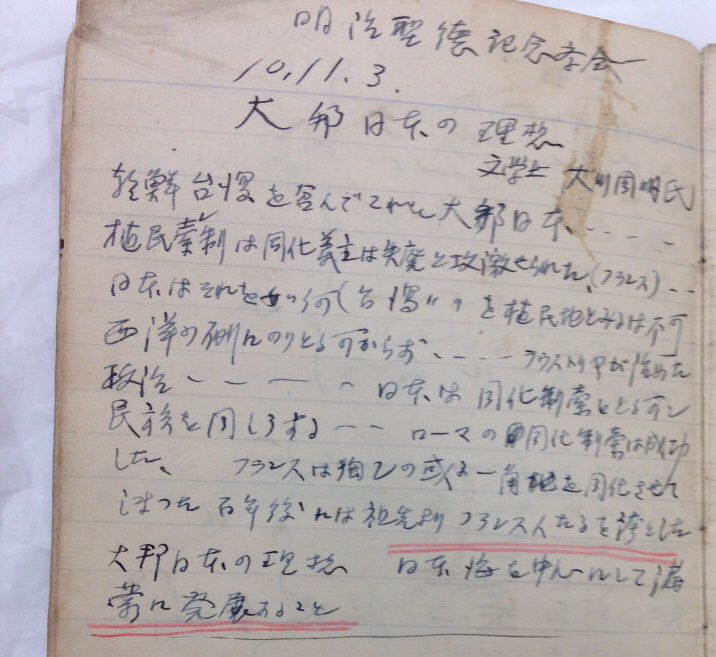 明治聖徳記念学会
10.11.3.
大邦日本の理想
文学士 大川周明氏
朝鮮台湾を含んでこれを大邦日本、----
植民策制は同化義主は失廃と攻激せられた、(フランス)--
日本はそれを如何(台湾〃〃を植民地とみるは不可
西洋の例にのりとる可からず、----
政治---- 日本は同化制策をとる可し
民族を同じうする-- ローマの同化制策は成功
した、フランスは独乙の或る一角地を同化させて
しまつた 百年後には祖先よりフランス人たるを誇とした
大邦日本の理想 日本海を中心にして満
蒙に発展すること